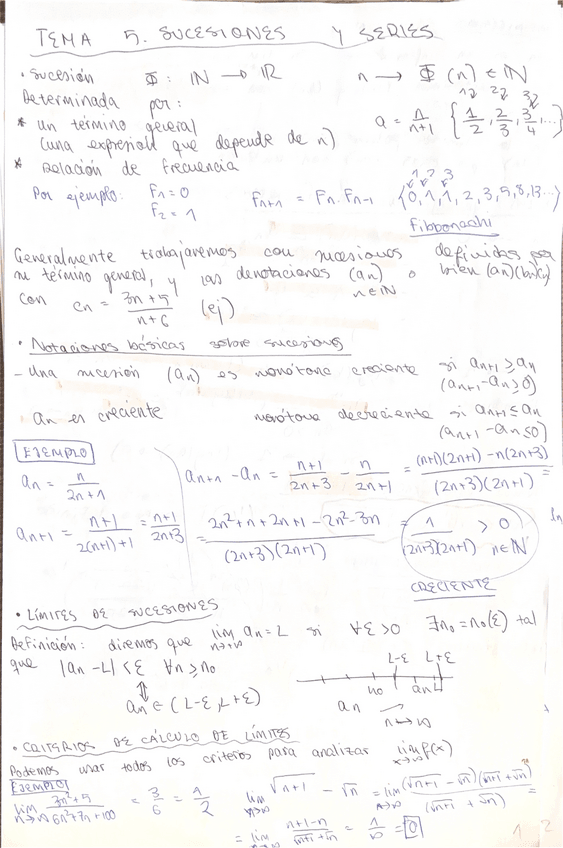 TEMA 5. SUCESIONES Y SERIES
• Sucesión Φ: ℕ → ℝ n → Φ(n) ∈ ℕ
Determinada por:
* un término general
(una expresión que depende de n)
a = n/(n+1) {1/2, 2/3, 3/4, ...}
1 2 3
* Relación de frecuencia
Por ejemplo: F₁ = 0
F₂ = 1
Fₙ₊₁ = Fₙ · Fₙ₋₁ {0, 1, 1, 2, 3, 5, 8, 13...}
1 2 3
Fibbonachi
Generalmente trabajaremos con sucesiones definidas por
su término general, y las denotaciones (aₙ) o bien (aₙ)(bₙ)(cₙ)
n∈ℕ
con cₙ = (3n+5)/(n+6) (ej)
• Notaciones básicas sobre sucesiones
- Una sucesión (aₙ) es monótona creciente si aₙ₊₁ ≥ aₙ
(aₙ₊₁ - aₙ ≥ 0)
aₙ es creciente monótona decreciente si aₙ₊₁ ≤ aₙ
(aₙ₊₁ - aₙ ≤ 0)
EJEMPLO
aₙ = n/(2n+1)
aₙ₊₁ = (n+1)/(2(n+1)+1) = (n+1)/(2n+3)
aₙ₊₁ - aₙ = (n+1)/(2n+3) - n/(2n+1) = ((n+1)(2n+1) - n(2n+3))/((2n+3)(2n+1)) =
= (2n²+n+2n+1-2n²-3n)/((2n+3)(2n+1)) = 1/((2n+3)(2n+1)) > 0 n∈ℕ
CRECIENTE
• LÍMITES DE SUCESIONES
Definición: diremos que lim n→∞ aₙ = L si ∀ε>0 ∃n₀ = n₀(ε) tal
que |aₙ - L| < ε ∀n ≥ n₀
⇕
aₙ ∈ (L-ε, L+ε)
L-ε L+ε
n₀ aₙ L
aₙ →
n→∞
• CRITERIOS DE CÁLCULO DE LÍMITES
Podemos usar todos los criterios para analizar lim x→∞ f(x)
EJEMPLO
lim n→∞ (3n²+5)/(6n²+7n+100) = 3/6 = 1/2
lim n→∞ √(n+1) - √n = lim n→∞ ((√(n+1) - √n)(√(n+1) + √n))/(√(n+1) + √n) =
= lim n→∞ (n+1-n)/(√(n+1) + √n) = 1/∞ = 0
1 2